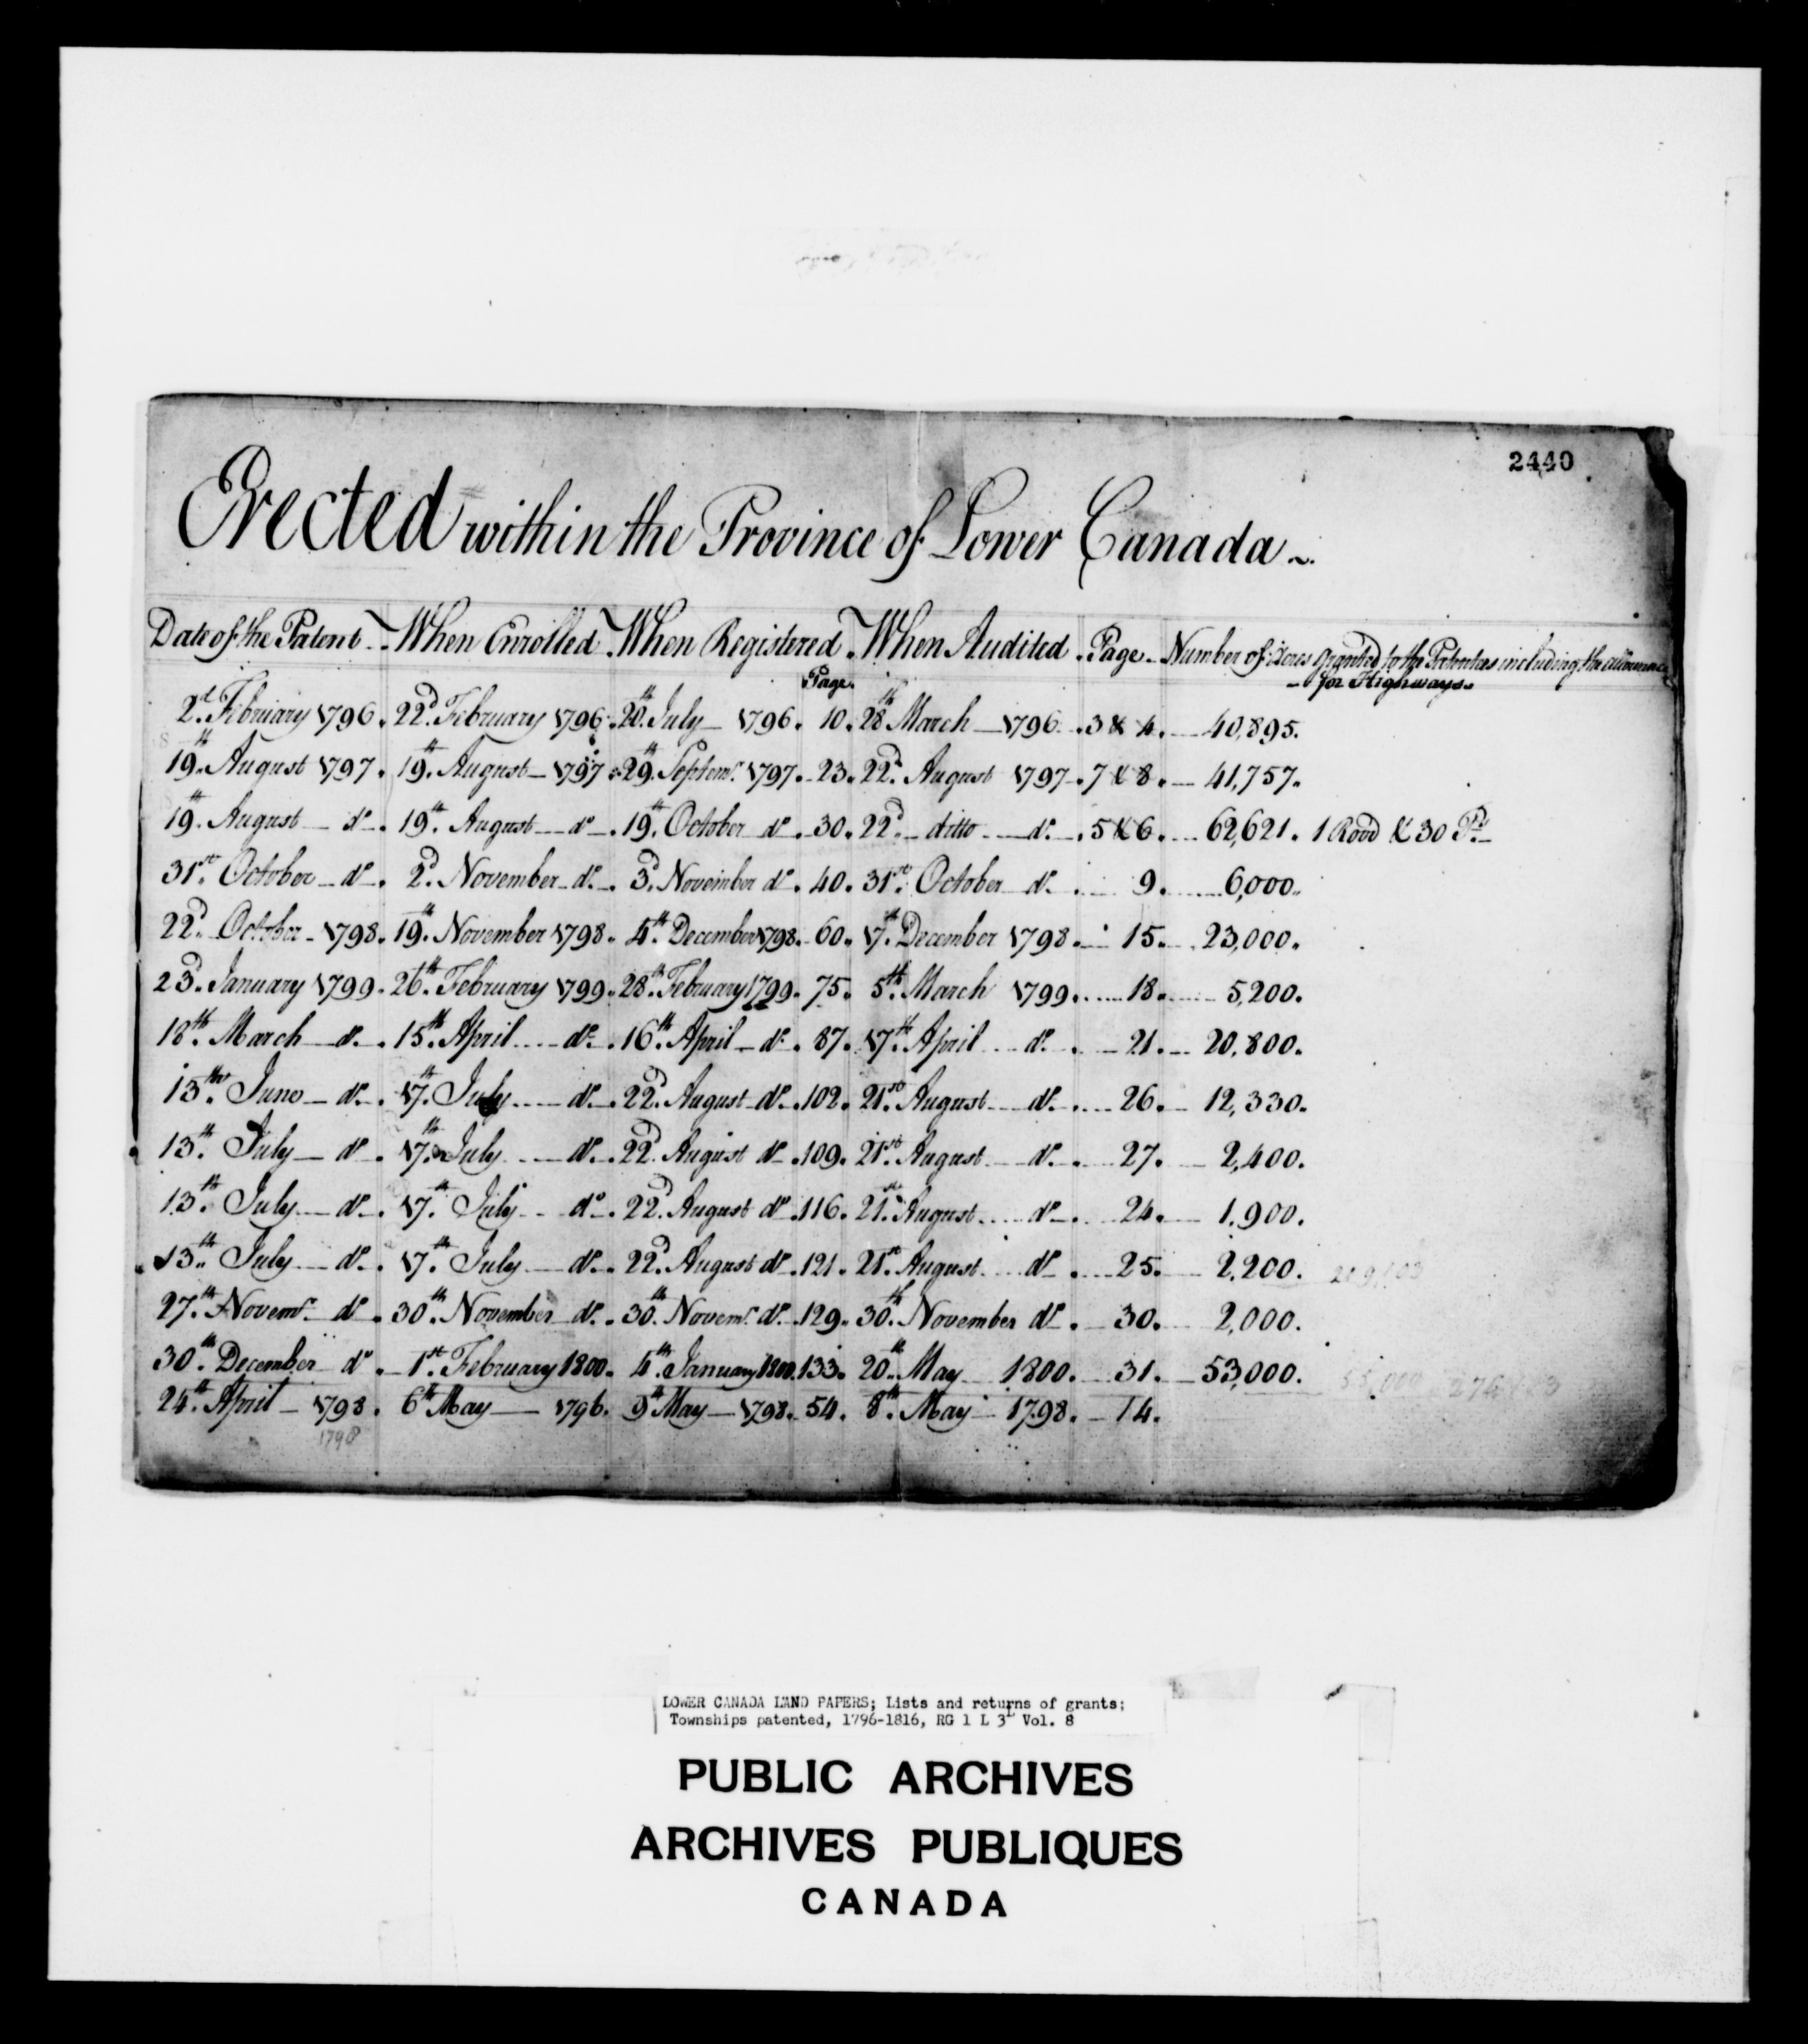 2440
Erected within the Province of Lower Canada
Date of the Patent When Enrolled When Registered When Audited Page Number of Acres granted to the Patentees including the allowance
Page. for Highways.
2d. February 1796. 22d. February 1796. 20th. July 1796. 10. 28th March 1796. 3 & 4. 40,895.
19th. August 1797. 19th. August 1797. 29th. Septemr. 1797. 23. 22d. August 1797. 7 & 8. 41,757.
19th. August do. 19th. August do. 19th. October do. 30. 22d. ditto do. 5 & 6. 62,621. 1 Rood & 30 Ps.
31st. October do. 2d. November do. 3d. November do. 40. 31st. October do. 9. 6,000.
22d. October 1798. 19th. November 1798. 4th. December 1798. 60. 7th. December 1798. 15. 23,000.
23d. January 1799. 26th. February 1799. 28th. February 1799. 75. 5th. March 1799. 18. 5,200.
18th. March do. 15th. April do. 16th. April do. 87. 17th. April do. 21. 20,800.
13th. June do. 17th. July do. 22d. August do. 102. 21st. August do. 26. 12,330.
13th. July do. 17th. July do. 22d. August do. 109. 21st. August do. 27. 2,400.
13th. July do. 17th. July do. 22d. August do. 116. 21st. August do. 24. 1,900.
13th. July do. 17th. July do. 22d. August do. 121. 21st. August do. 25. 2,200.
27th. Novemr. do. 30th. November do. 30th. Novemr. do. 129. 30th. November do. 30. 2,000.
30th. December do. 1st. February 1800. 4th. January 1800. 133. 20th. May 1800. 31. 53,000.
24th. April 1798. 6th May 1796. 9th May 1798. 54. 8th. May 1798. 14.
1798
LOWER CANADA LAND PAPERS; Lists and returns of grants;
Townships patented, 1796-1816, RG 1 L 3L Vol. 8
PUBLIC ARCHIVES
ARCHIVES PUBLIQUES
CANADA